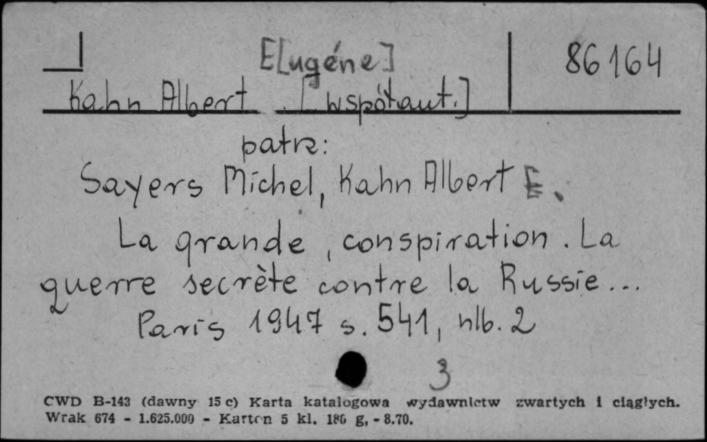 E[ugéne]
86164
Kahn Albert [współaut.]
patrz:
Sayers Michel, Kahn Albert E.
La grande conspiration. La
guerre secrète contre la Russie...
Paris 1947 s. 541, nlb. 2
3
CWD B-143 (dawny 15 c) Karta katalogowa wydawnictw zwartych i ciągłych.
Wrak 674 - 1.625.000 - Karton 5 kl. 180 g, - 8.70.